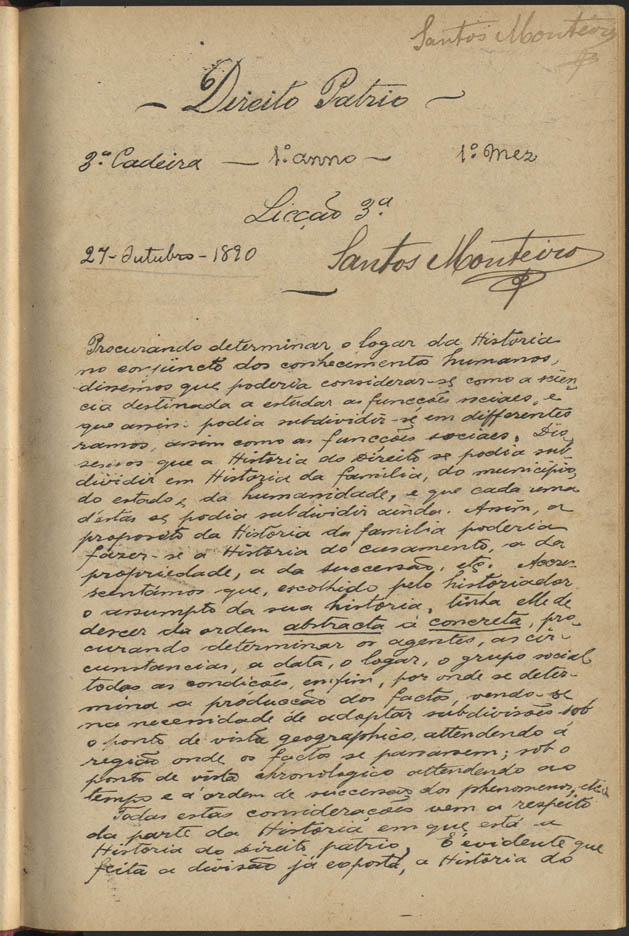 Santos Monteiro
Direito Patrio
3ª Cadeira — 1º anno — 1º Mez
Licção 3ª
27 - Outubro - 1890 Santos Monteiro
Procurando determinar o logar da Historia
no conjuncto dos conhecimentos humanos,
dissemos que poderia considerar-se como a scien-
cia destinada a estudar as funcções sociaes, e
que assim podia subdividir-se em differentes
ramos, assim como as funcções sociaes. Dis-
semos que a Historia do Direito se podia sub-
dividir em Historia da familia, do municipio,
do estado e da humanidade, e que cada uma
d'estas se podia subdividir ainda. Assim, a
proposito da Historia da familia poderia
fazer-se a Historia do casamento, a da
propriedade, a da successão, etc. Accres-
centámos que, escolhido pelo historiador
o assumpto da sua historia, tinha elle de
descer da ordem abstracta á concreta, pro-
curando determinar os agentes, as cir-
cunstancias, a data, o logar, o grupo social
todas as condições, emfim, por onde se deter-
mina a producção dos factos, vendo-se
na necessidade de adoptar subdivisões sob
o ponto de vista geographico, attendendo á
região onde os factos se passassem; sob o
ponto de vista chronologico attendendo ao
tempo e á ordem de successão dos phenomenos, etc.
Todas estas considerações vem a respeito
da parte da Historia em que está a
Historia do Direito patrio. É evidente que
feita a divisão já exposta, a Historia do